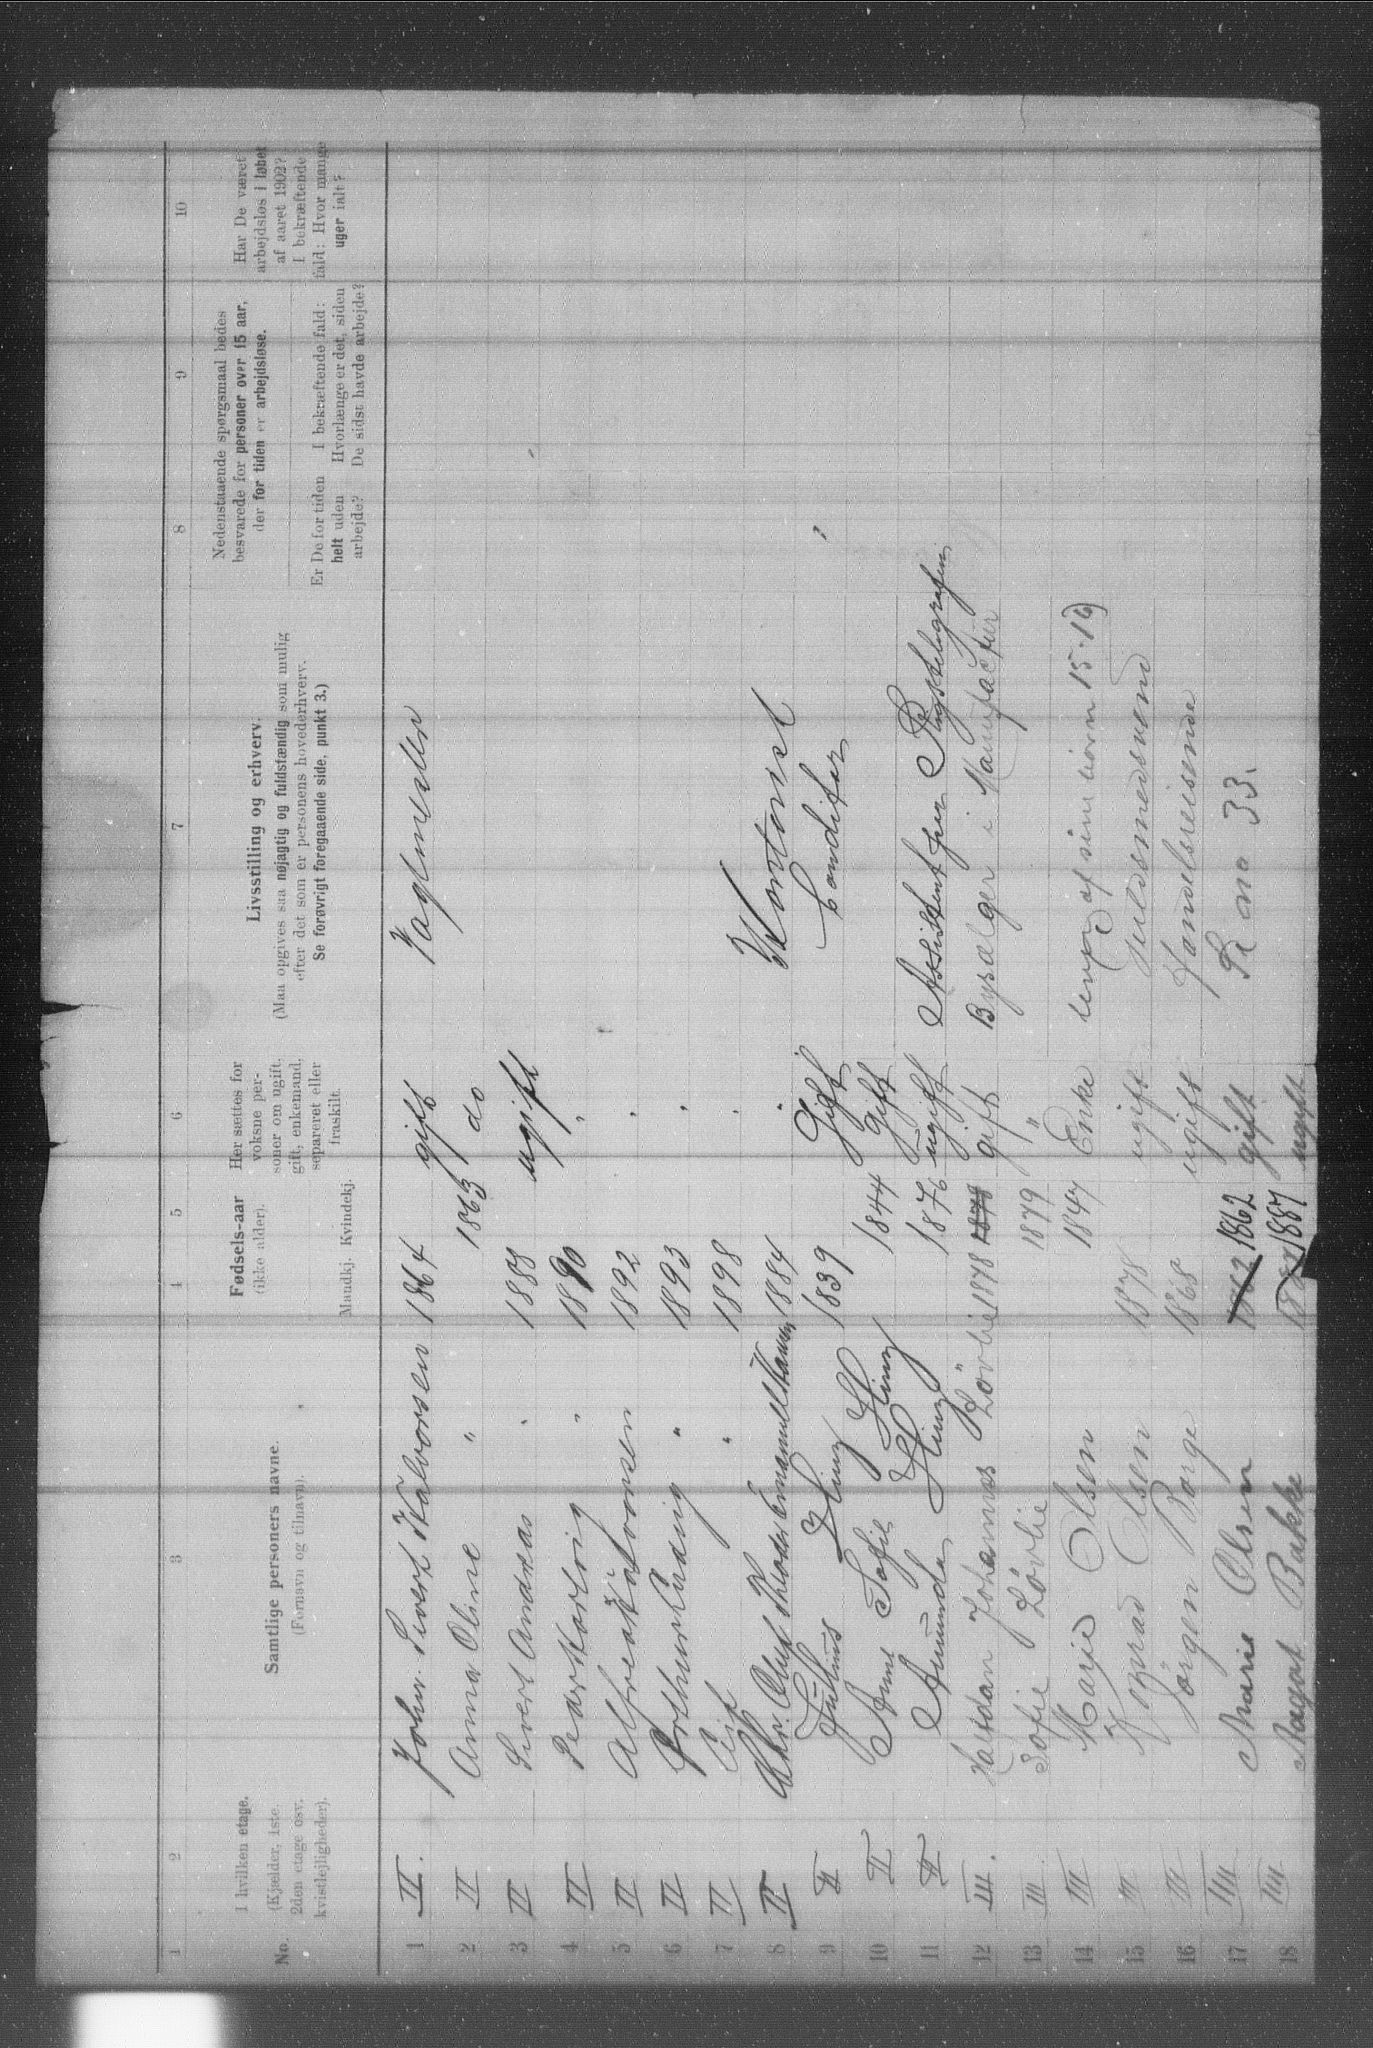 1 2 3 4 5 6 7 8 9 10
I hvilken etage.
(Kjælder, 1ste,
2den etage osv.
kvistlejligheder).
No.
Samtlige personers navne.
(Fornavn og tilnavn).
Fødsels-aar
(ikke alder).
Mandkj. Kvindekj.
Her sættes for
voksne per-
soner om ugift,
gift, enkemand,
separeret eller
fraskilt.
Livsstilling og erhverv.
(Maa opgives saa nøjagtig og fuldstændig som mulig
efter det som er personens hovederhverv.
Se forøvrigt foregaaende side, punkt 3.)
Nedenstaaende spørgsmaal bedes
besvarede for personer over 15 aar,
der for tiden er arbejdsløse.
Er De for tiden
helt uden
arbejde?
I bekræftende fald:
Hvorlænge er det, siden
De sidst havde arbejde?
Har De været
arbejdsløs i løbet
af aaret 1902?
I bekræftende
fald: Hvor mange
uger ialt?
1 II. John Sivert Halvorsen 1864 gift
2 II Anna Oline " 1863 do
3 II Sivert Andreas " 1888 ugift
4 II " 1890 "
5 II Alfred Halvorsen 1892 "
6 II Arthur Ludvig " 1893 "
7 II " 1898 "
8 II Chr. Oluf Emanuel Hansen 1884 " Kontorist
9 II Julius 1839 Gift Conditor
10 II Anne Sofie 1844 Gift
11 II Amunda 1876 ugift Assistent
12 III. Halfdan Johannes Løvlie 1878 1878 gift Bysælger i Manufactur
13 III. Sofie Løvlie 1879 "
14 III Marie Olsen 1847 Enke lever af sine børn 15-16)
15 III Konrad Olsen 1878 ugift Guldsmedsvend
16 III Jørgen Borge 1868 ugift Handelsreisende
17 IIII Marie Olsen 1862 1862 gift 33.
18 IIII Aagot Bakke 1887 ugift